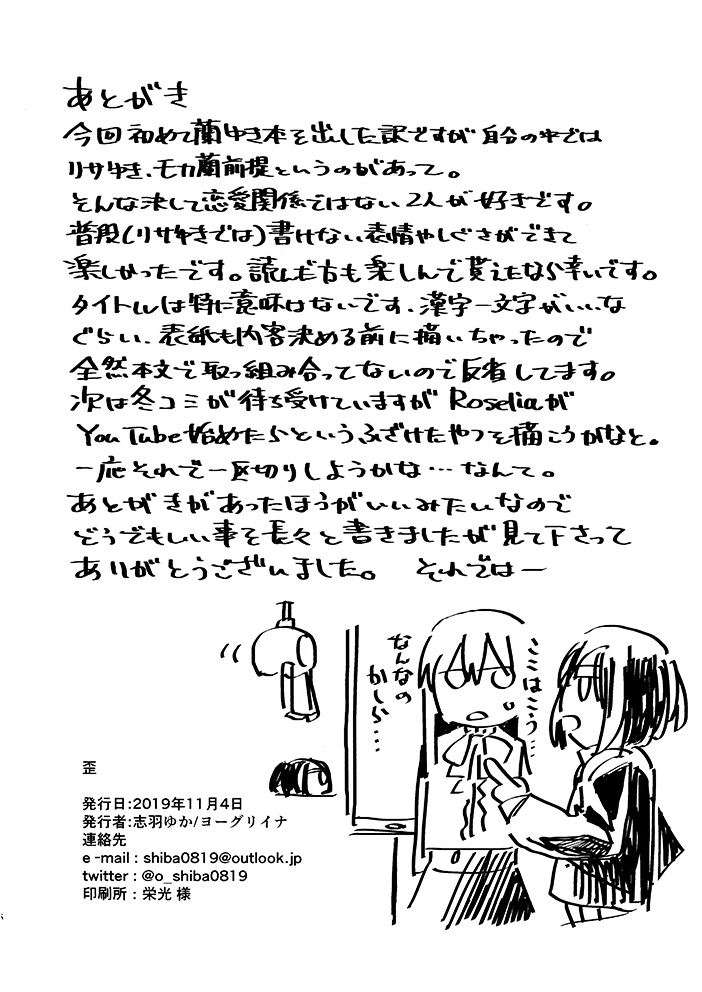 あとがき
今回初めて蘭ゆき本を出した訳ですが自分の中では
リサゆき、モカ蘭前提というのがあって。
そんな決して恋愛関係ではない2人が好きです。
普段(リサゆきでは)書けない表情やしぐさができて
楽しかったです。読んだ方も楽しんで貰えたなら幸いです。
タイトルは特に意味はないです、漢字一文字がいいな
ぐらい、表紙も内容決める前に描いちゃったので
全然本文で取っ組み合ってないので反省してます。
次は冬コミが待ち受けていますがRoseliaが
YouTube始めたらというふざけたやつを描こうかなと。
一応それで一区切りしようかな…なんて。
あとがきがあったほうがいいみたいなので
どうでもいい事を長々と書きましたが見て下さって
ありがとうございました。 それではー
ここはこう…
なんなの
かしら…
歪
発行日:2019年11月4日
発行者:志羽ゆか/ヨーグリイナ
連絡先
e-mail : shiba0819@outlook.jp
twitter : @o_shiba0819
印刷所 : 栄光 様